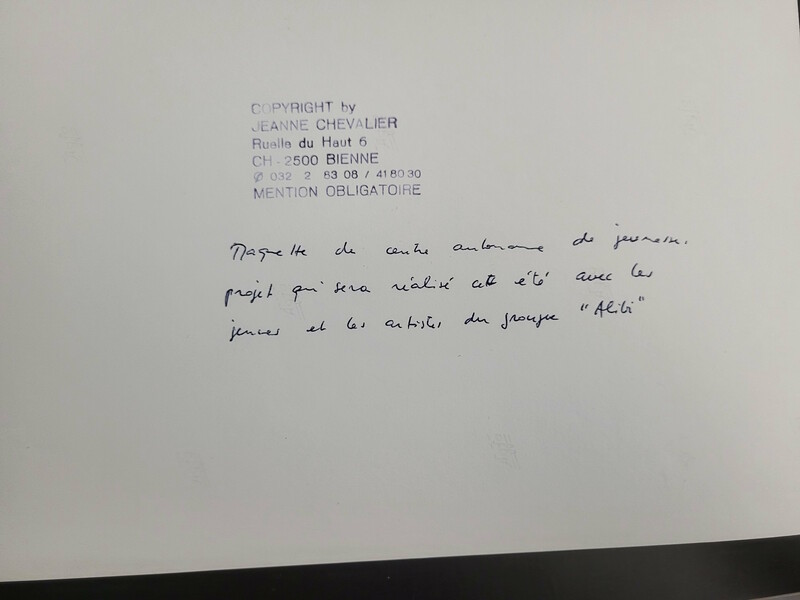 COPYRIGHT by
JEANNE CHEVALIER
Ruelle du Haut 6
CH - 2500 BIENNE
∅ 032 2 83 08 / 41 80 30
MENTION OBLIGATOIRE
Maquette de centre autonome de jeunesse.
projet qui sera réalisé cet été avec les
jeunes et les artistes du groupe "Alibi"